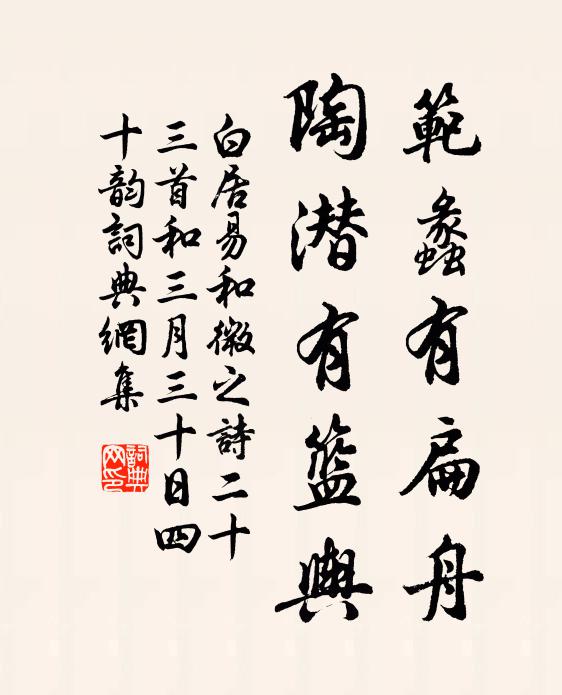 範蠡有扁舟
陶潜有籃輿
白居易和微之詩二十
三首和三月三十日四
十韵詞典網集
詞典网印